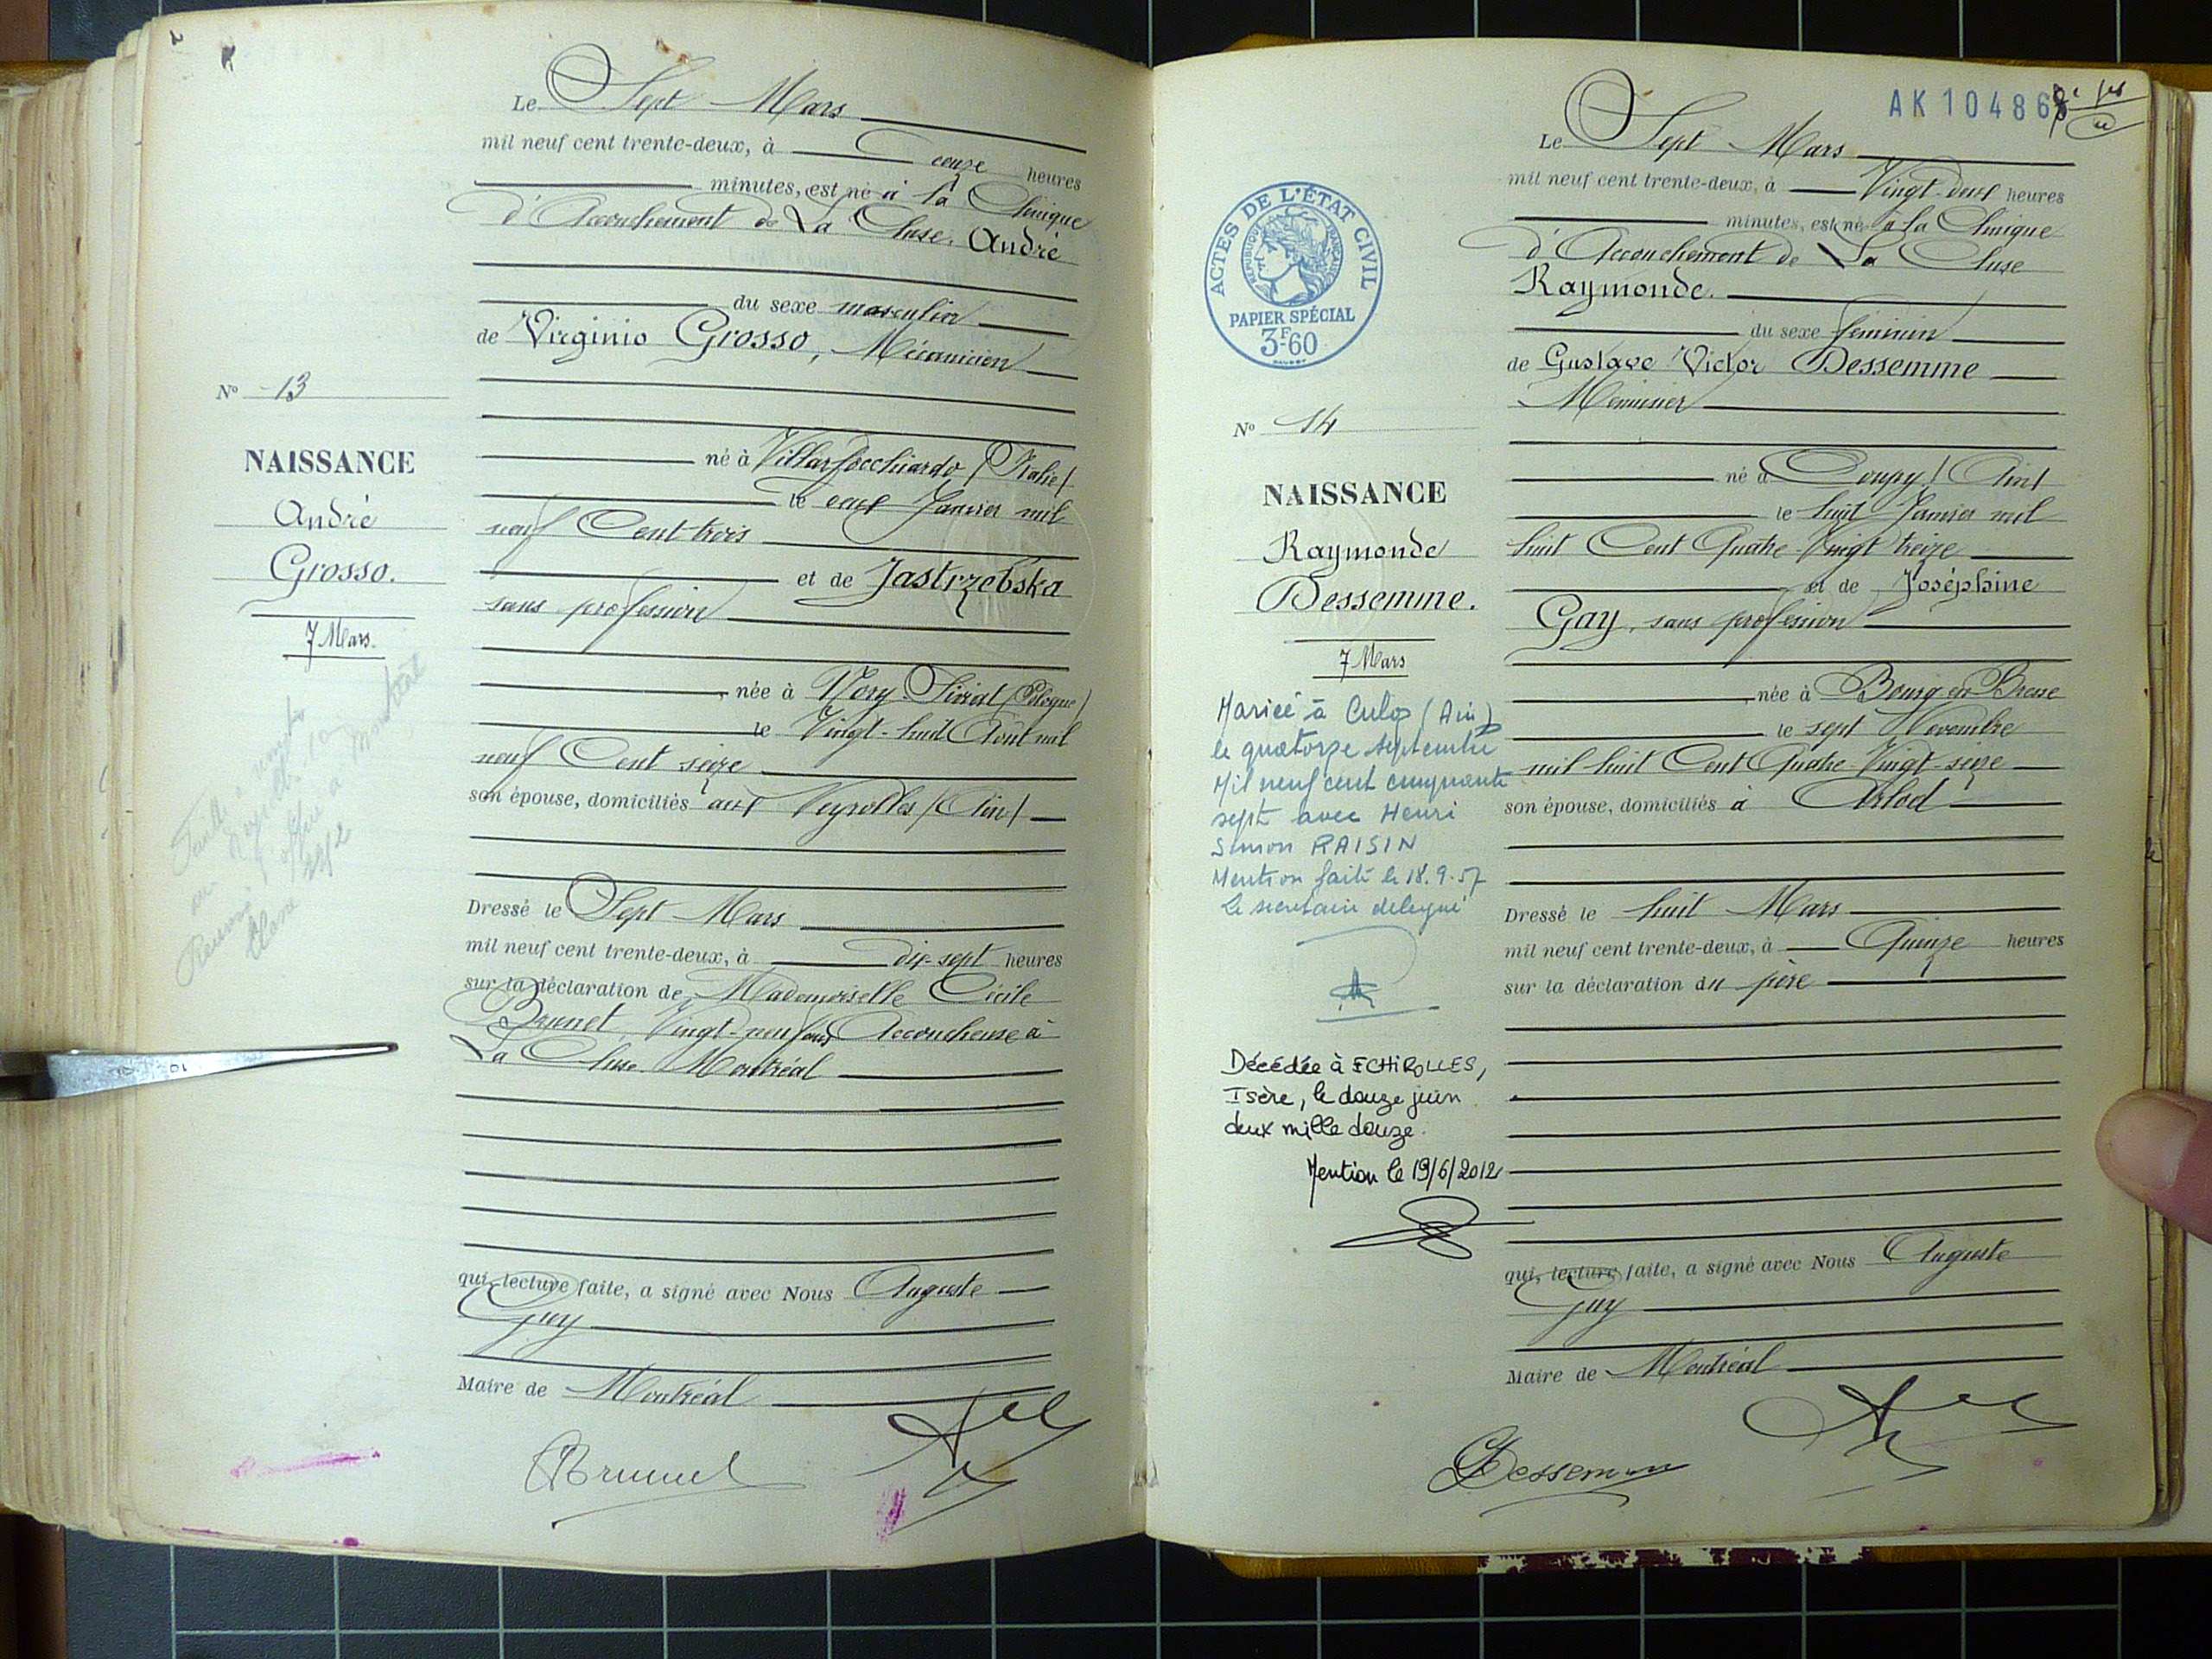 Le Sept Mars
mil neuf cent trente-deux, à onze heures
minutes, est né à la Clinique
d'Accouchement de La Cluse. André
du sexe masculin
de Virginio Grosso, Mécanicien
né à Villarfocchiardo (Italie)
le Janvier mil
neuf Cent trois
et de Jastrzebska
sans profession
née à (Pologne)
le Vingt-huit Août mil
neuf Cent seize
son épouse, domiciliés aux Neyrolles (Ain)
Dressé le Sept Mars
mil neuf cent trente-deux, à dix-sept heures
sur la déclaration de Mademoiselle Cécile
Brunet, Vingt-neuf ans, Accoucheuse à
La Cluse Montréal
qui, lecture faite, a signé avec Nous Auguste
Guy
Maire de Montréal
Nº 13
NAISSANCE
André
Grosso.
7 Mars.
AK 10486
Le Sept Mars
mil neuf cent trente-deux, à Vingt-deux heures
minutes, est né à la Clinique
d'Accouchement de La Cluse
Raymonde.
du sexe féminin
de Gustave Victor Dessemme
Menuisier
né à Coupy (Ain)
le huit Janvier mil
huit Cent Quatre-Vingt treize
et de Joséphine
Gay, sans profession
née à Bourg en Bresse
le sept Novembre
mil huit Cent Quatre-Vingt-seize
son épouse, domiciliés à Arlod
Dressé le huit Mars
mil neuf cent trente-deux, à Quinze heures
sur la déclaration du père
qui, lecture faite, a signé avec Nous Auguste
Guy
Maire de Montréal
Dessemme
ACTES DE L'ÉTAT CIVIL
RÉPUBLIQUE FRANÇAISE
PAPIER SPÉCIAL
3F.60
Nº 14
NAISSANCE
Raymonde
Dessemme.
7 Mars
Mariée à Culoz (Ain)
le quatorze septembre
Mil neuf cent cinquante
sept avec Henri
Simon RAISIN
Mention faite le 18.9.57
Le secrétaire délégué
Décédée à ECHIROLLES,
Isère, le douze juin
deux mille douze.
Mention le 19/6/2012